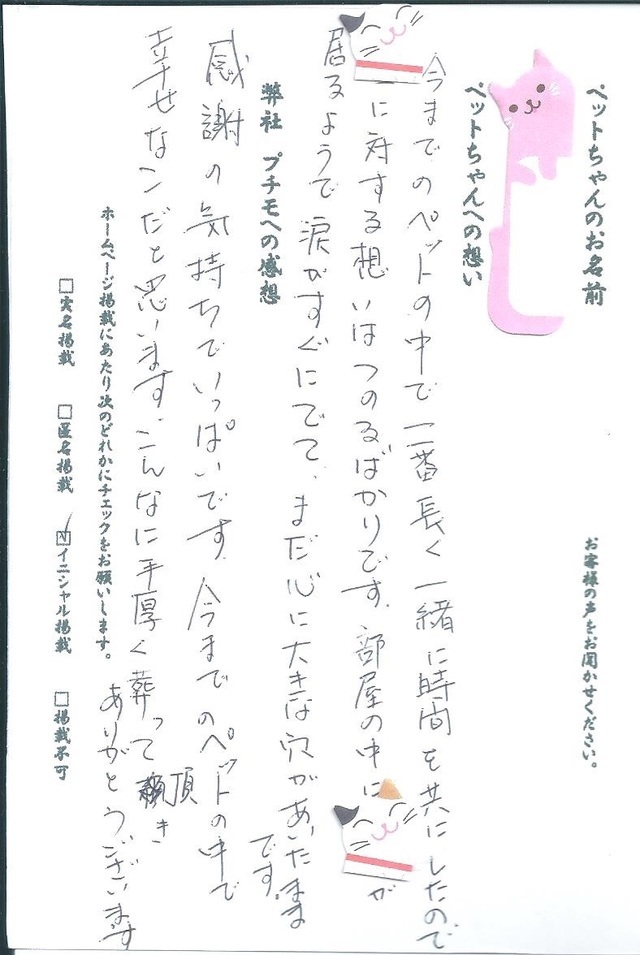 ペットちゃんのお名前
お客様の声をお聞かせください。
ペットちゃんへの想い
今までのペットの中で一番長く一緒に時間を共にしたので
に対する想いはつのるばかりです。部屋の中に
が
居るようで涙がすぐにでて、まだ心に大きな穴があいたまま
です。
弊社 プチモへの感想
感謝の気持ちでいっぱいです。今までのペットの中で
幸せなコだと思います。こんなに手厚く葬って頂き
ありがとうございます
ホームページ掲載にあたり次のどれかにチェックをお願いします。
□実名掲載 □匿名掲載 ☑イニシャル掲載 □掲載不可